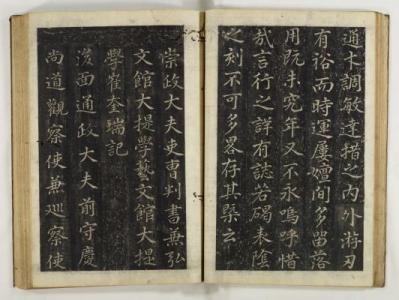 通才調敏達措之內外游刃
有裕而時運屢嬗間多留落
用旣未究年又不永嗚呼惜
哉言行之詳有誌若碣表隧
之刻不可多畧存其槩云
崇政大夫吏曹判書兼弘
文館大提學藝文館大提
學崔奎瑞記
後面通政大夫前守慶
尚道觀察使兼巡察使